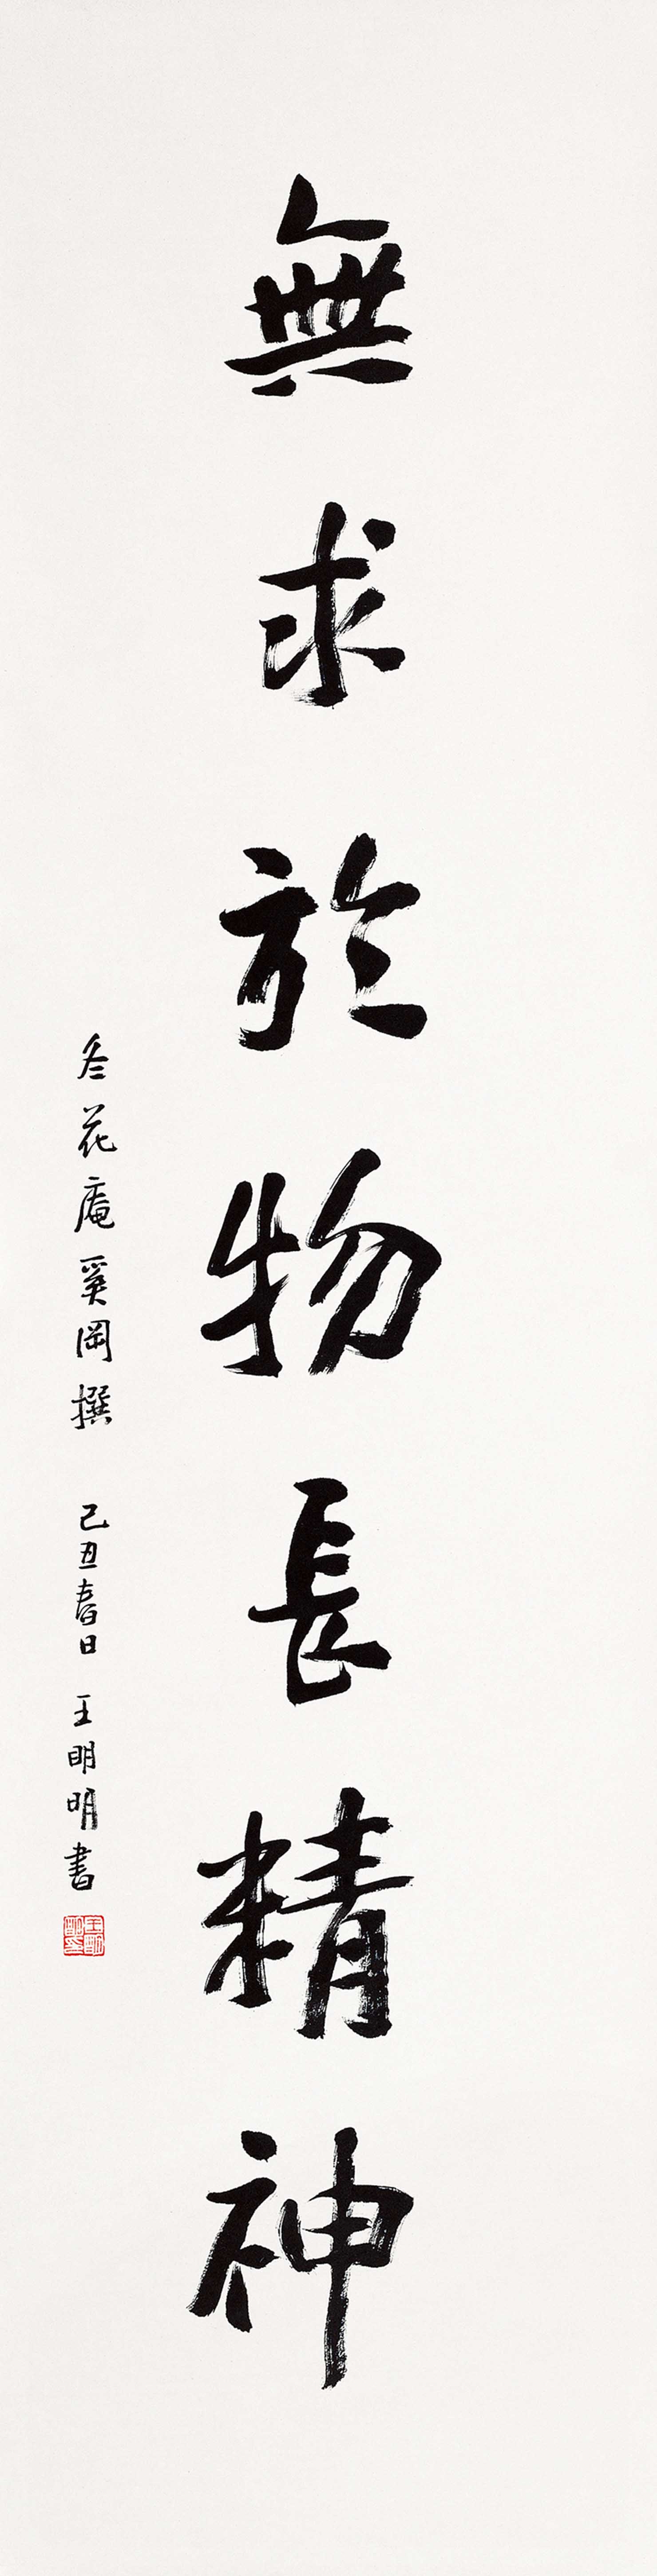 無求於物長精神
冬花庵奚岡撰 己丑春日 王明明書